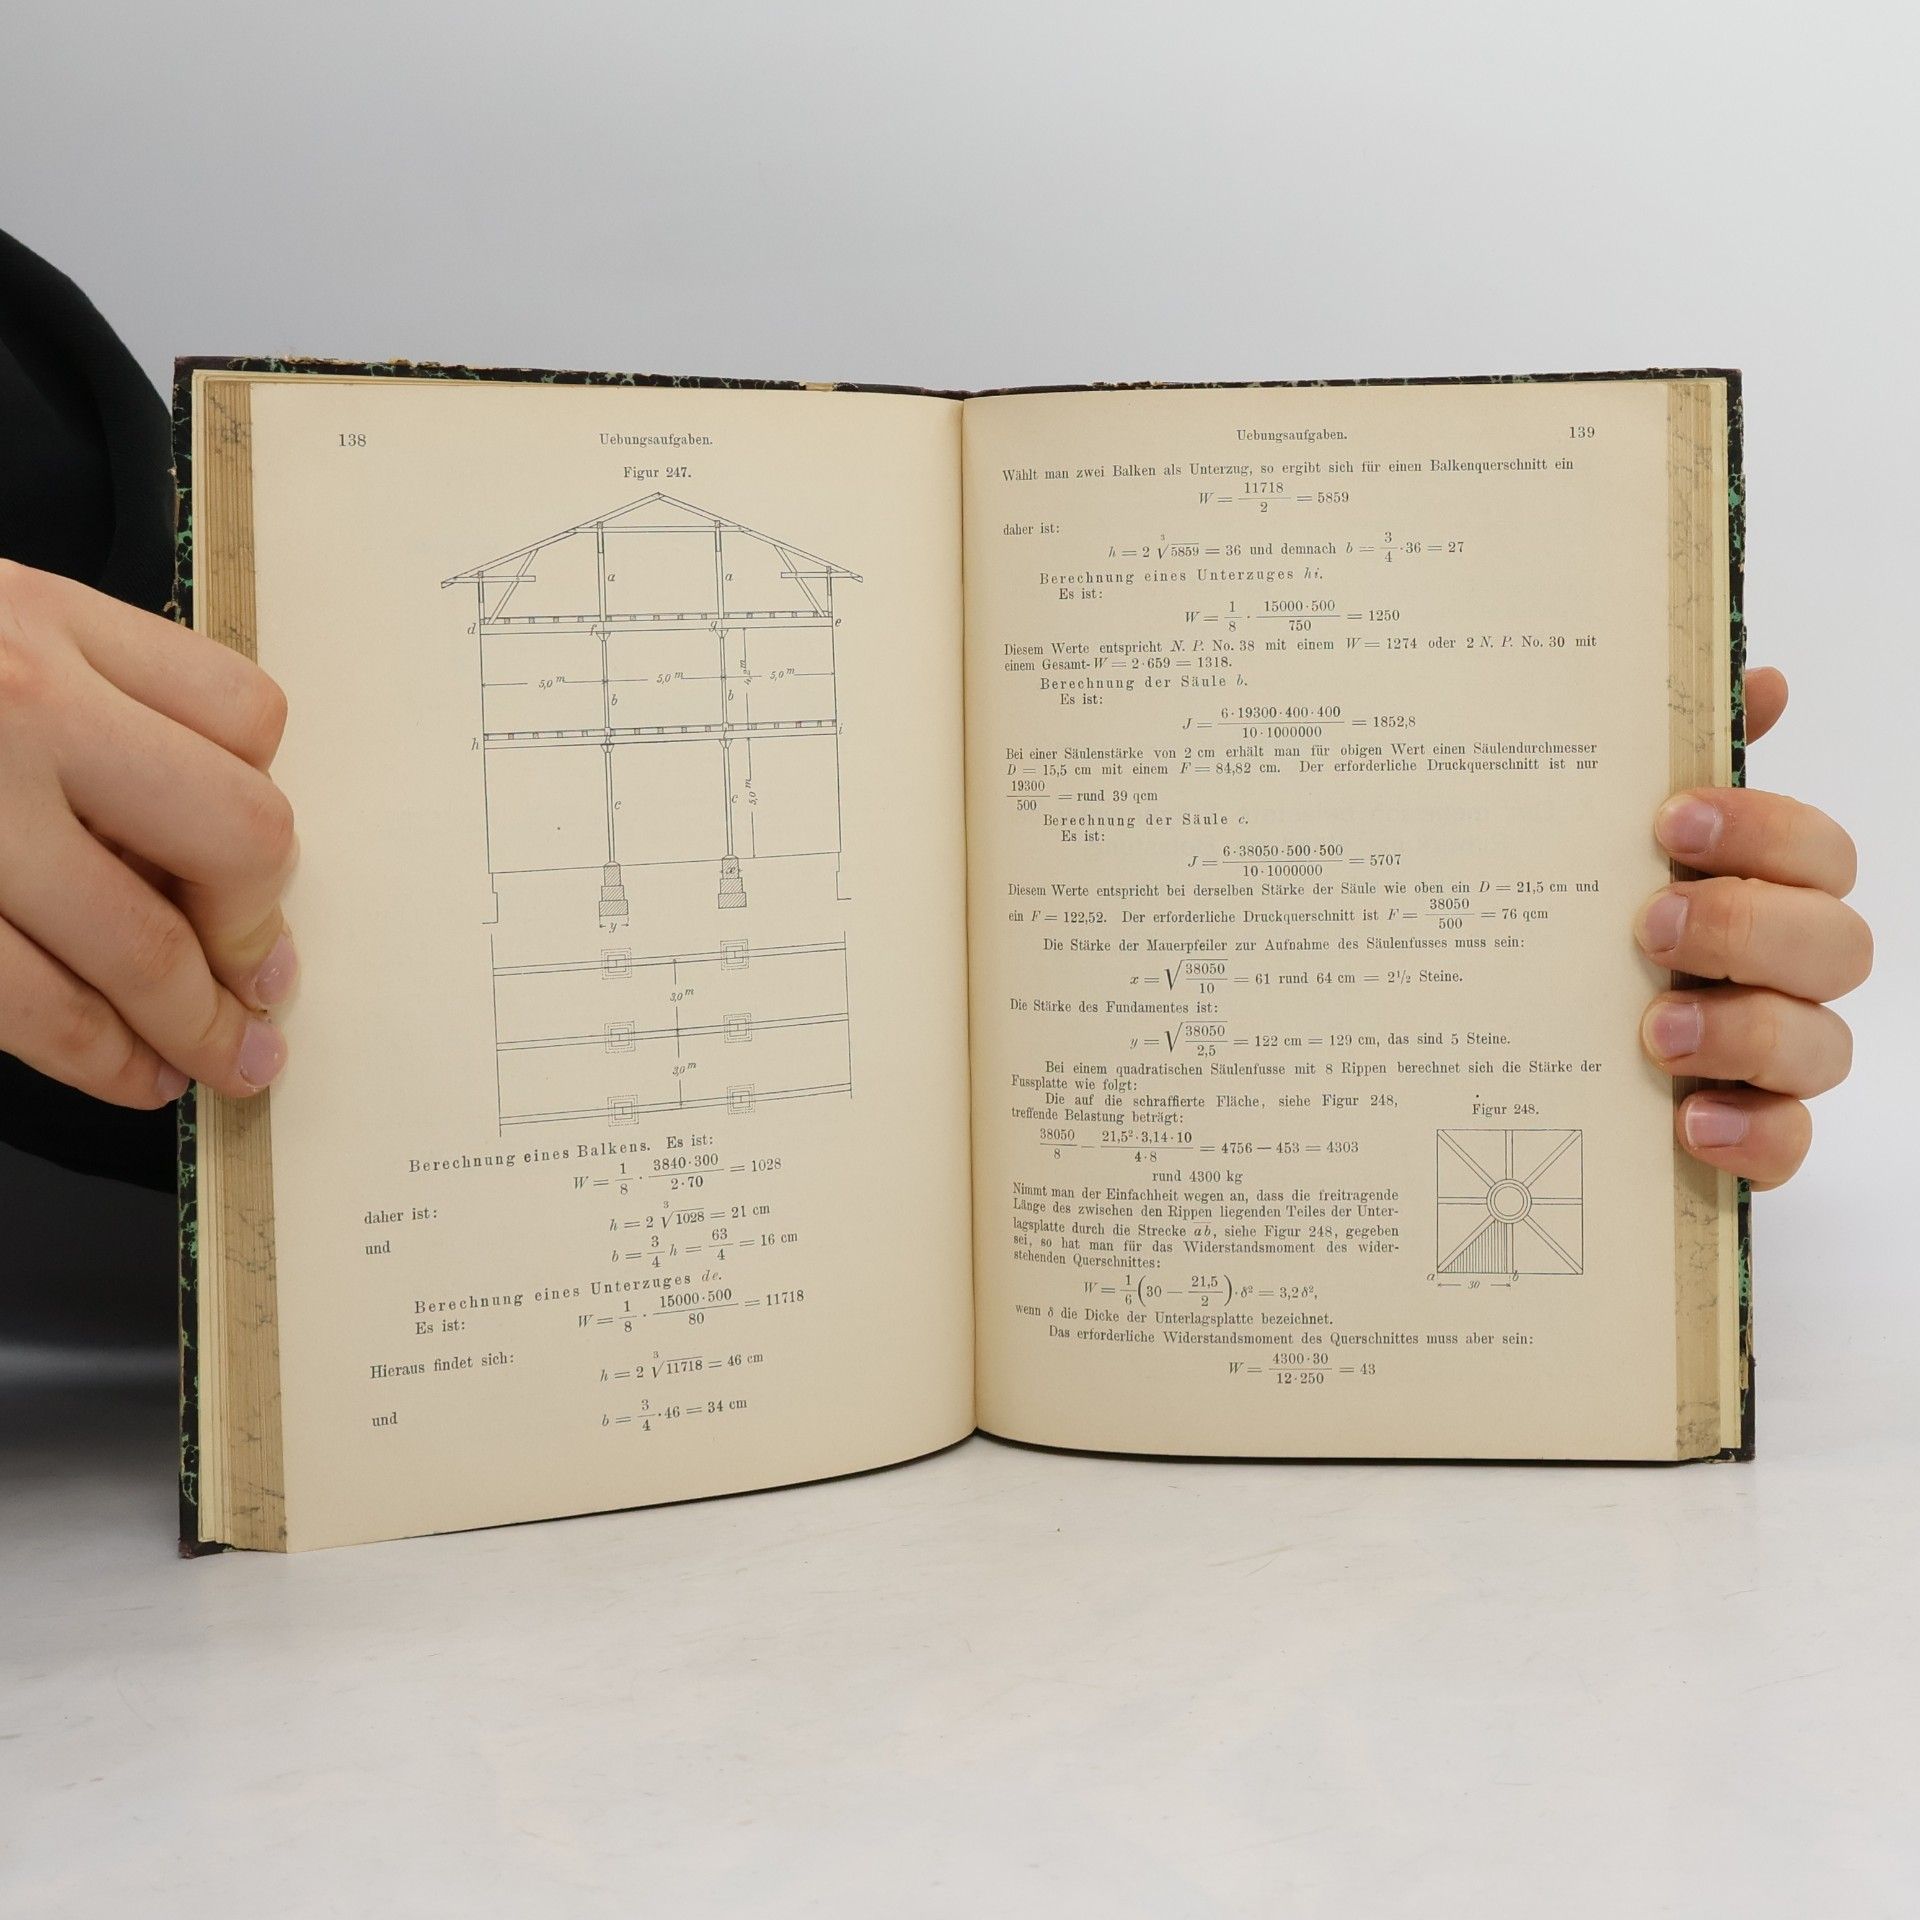 138
Uebungsaufgaben.
Figur 247.
a a
d f g e
5,0 m 5,0 m 5,0 m
b b
h i
c c 5,0 m
x
y
3,0 m
3,0 m
Berechnung eines Balkens. Es ist:
W = 1/8 · 3840·300/2·70 = 1028
daher ist:
h = 2 ∛1028 = 21 cm
und
b = 3/4 h = 63/4 = 16 cm
Berechnung eines Unterzuges de.
Es ist:
W = 1/8 · 15000·500/80 = 11718
Hieraus findet sich:
h = 2 ∛11718 = 46 cm
und
b = 3/4 · 46 = 34 cm
Uebungsaufgaben.
139
Wählt man zwei Balken als Unterzug, so ergibt sich für einen Balkenquerschnitt ein
W = 11718/2 = 5859
daher ist:
h = 2 ∛5859 = 36 und demnach b = 3/4 · 36 = 27
Berechnung eines Unterzuges hi.
Es ist:
W = 1/8 · 15000·500/750 = 1250
Diesem Werte entspricht N. P. No. 38 mit einem W = 1274 oder 2 N. P. No. 30 mit
einem Gesamt-W = 2·659 = 1318.
Berechnung der Säule b.
Es ist:
J = 6·19300·400·400/10·1000000 = 1852,8
Bei einer Säulenstärke von 2 cm erhält man für obigen Wert einen Säulendurchmesser
D = 15,5 cm mit einem F = 84,82 cm. Der erforderliche Druckquerschnitt ist nur
19300/500 = rund 39 qcm
Berechnung der Säule c.
Es ist:
J = 6·38050·500·500/10·1000000 = 5707
Diesem Werte entspricht bei derselben Stärke der Säule wie oben ein D = 21,5 cm und
ein F = 122,52. Der erforderliche Druckquerschnitt ist F = 38050/500 = 76 qcm
Die Stärke der Mauerpfeiler zur Aufnahme des Säulenfusses muss sein:
x = √38050/10 = 61 rund 64 cm = 2 1/2 Steine.
Die Stärke des Fundamentes ist:
y = √38050/2,5 = 122 cm = 129 cm, das sind 5 Steine.
Bei einem quadratischen Säulenfusse mit 8 Rippen berechnet sich die Stärke der
Fussplatte wie folgt:
Die auf die schraffierte Fläche, siehe Figur 248,
treffende Belastung beträgt:
38050/8 − 21,5²·3,14·10/4·8 = 4756 − 453 = 4303
rund 4300 kg
Nimmt man der Einfachheit wegen an, dass die freitragende
Länge des zwischen den Rippen liegenden Teiles der Unter-
lagsplatte durch die Strecke ab, siehe Figur 248, gegeben
sei, so hat man für das Widerstandsmoment des wider-
stehenden Querschnittes:
W = 1/6 (30 − 21,5/2) · δ² = 3,2 δ²,
wenn δ die Dicke der Unterlagsplatte bezeichnet.
Das erforderliche Widerstandsmoment des Querschnittes muss aber sein:
W = 4300·30/12·250 = 43
Figur 248.
a b
30